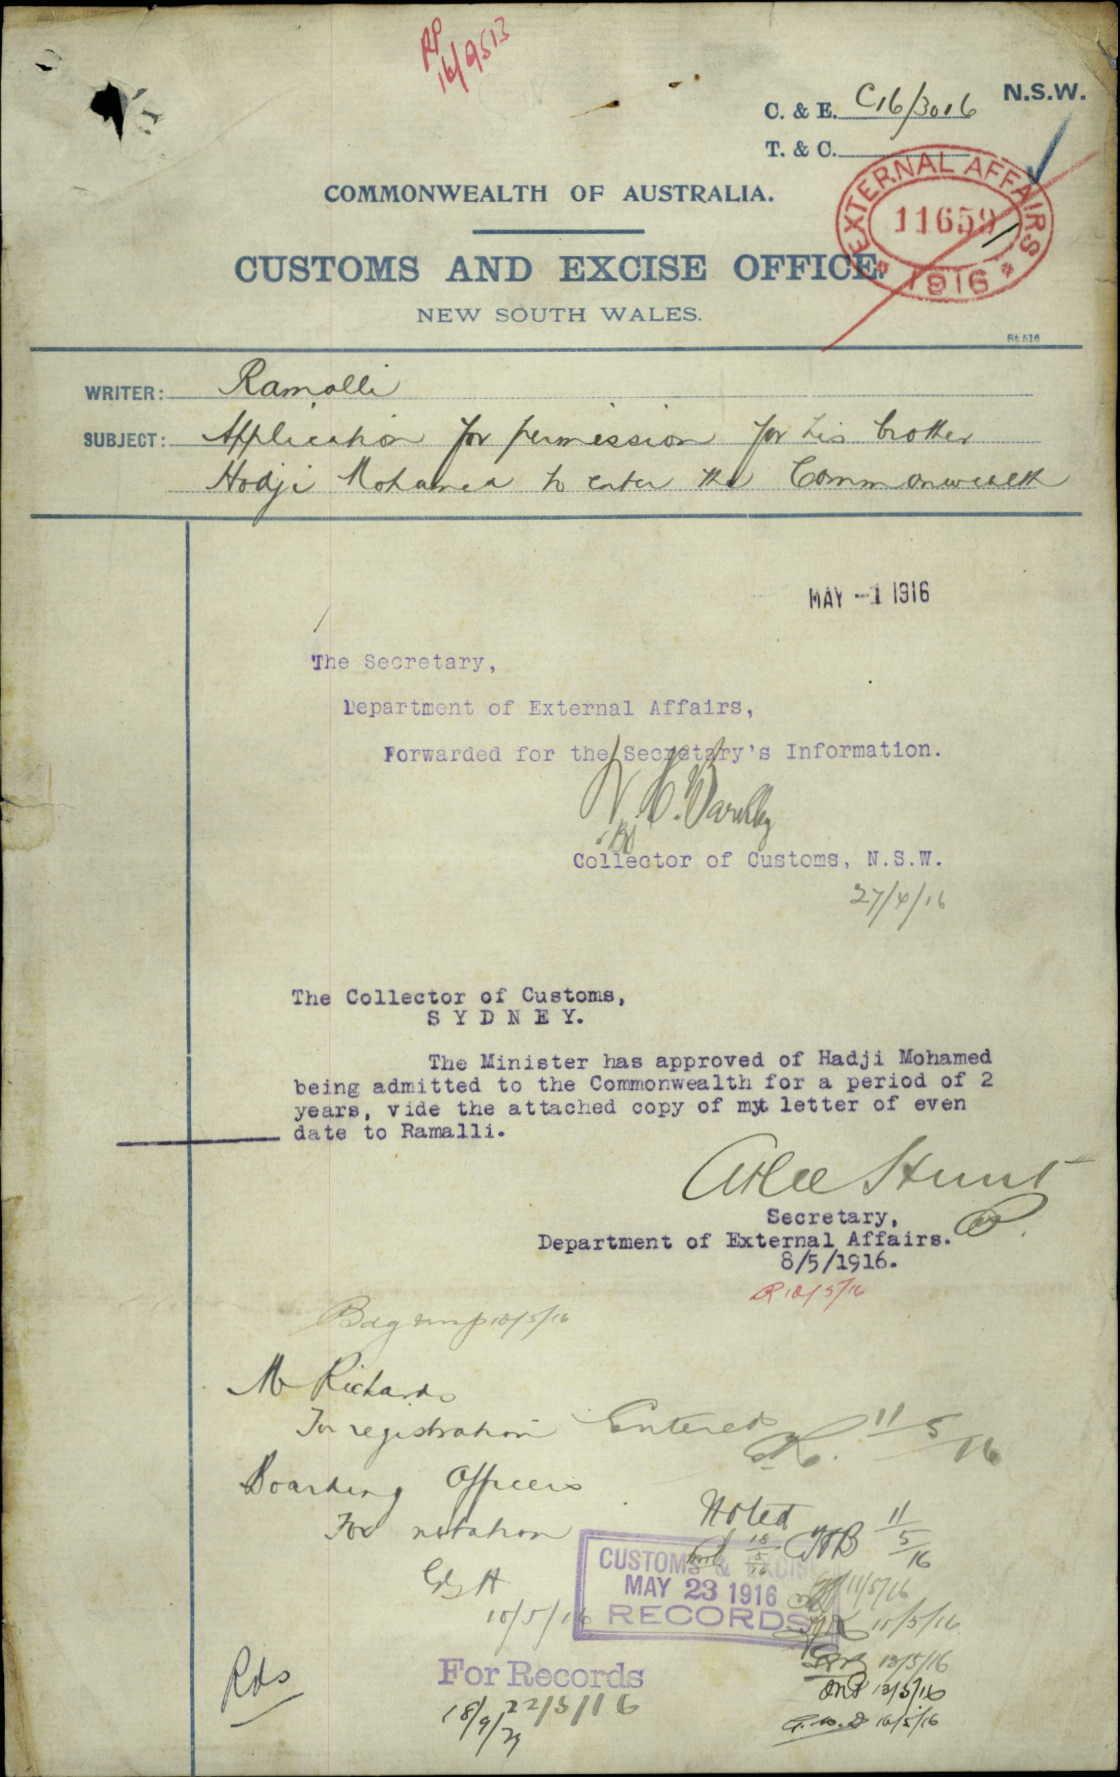 RP
16/9513
N.S.W.
C. & E. C16/3016
T. & C.
EXTERNAL AFFAIRS
11659
1916
COMMONWEALTH OF AUSTRALIA.
CUSTOMS AND EXCISE OFFICE,
NEW SOUTH WALES.
WRITER: Ramalli
SUBJECT: Application for permission for his brother
Hodji Mohamed to enter the Commonwealth
MAY -1 1916
The Secretary,
Department of External Affairs,
Forwarded for the Secretary's Information.
Collector of Customs, N.S.W.
27/4/16
The Collector of Customs,
S Y D N E Y.
The Minister has approved of Hadji Mohamed
being admitted to the Commonwealth for a period of 2
years, vide the attached copy of my letter of even
date to Ramalli.
Atlee Hunt
Secretary,
Department of External Affairs.
8/5/1916.
10/5/16
10/5/16
Mr Richards
For registration Entered
11/5/16
Boarding Officers
For notation
Noted
11/5/16
10/5/16
CUSTOMS & EXCISE
MAY 23 1916
RECORDS
11/5/16
11/5/16
13/5/16
13/5/16
16/5/16
Rds
For Records
22/5/16
18/9/29